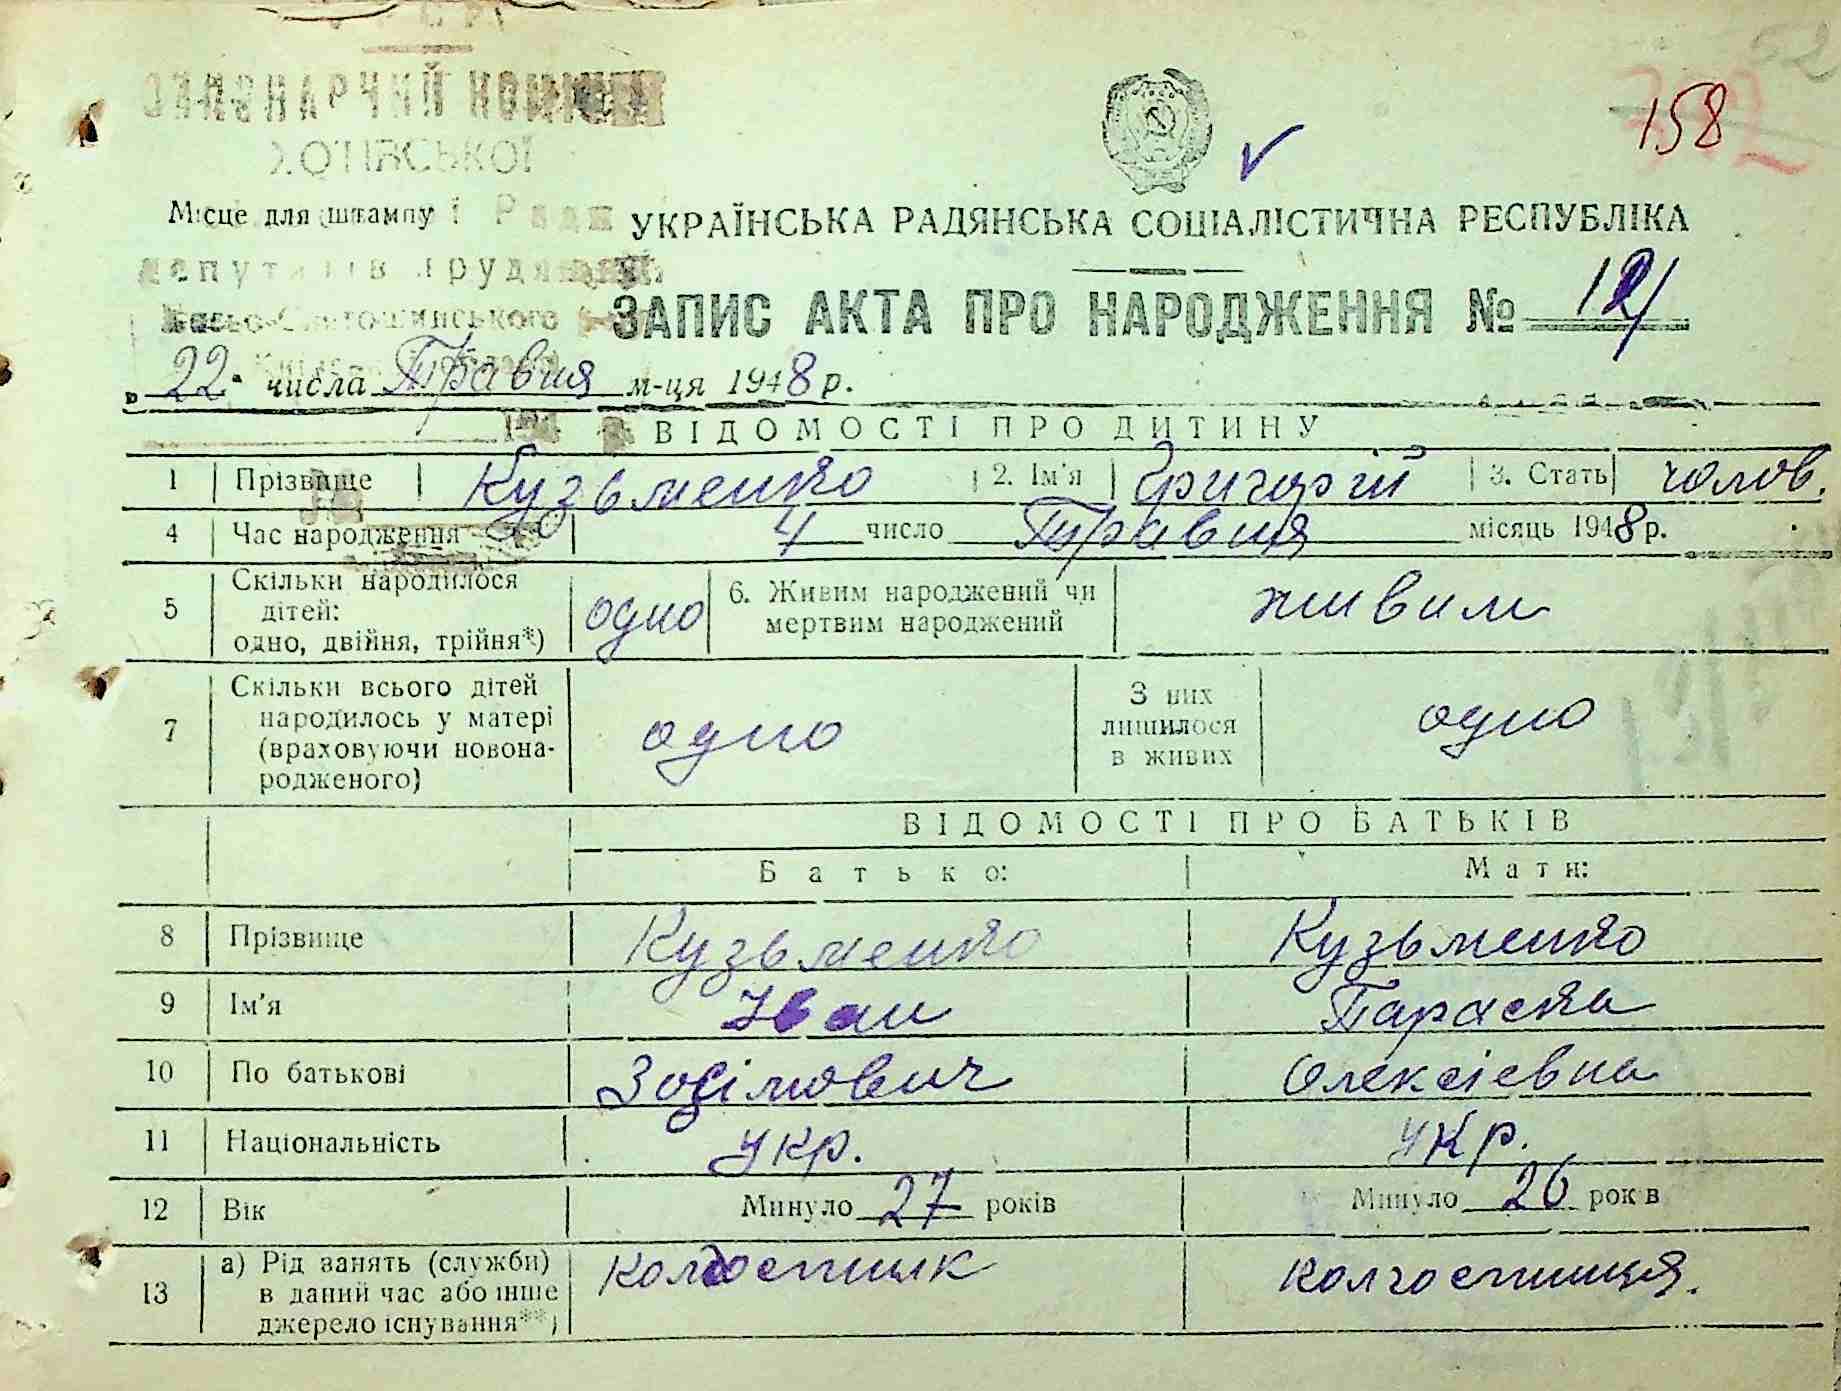 52
158
ХОТІВСЬКОЇ
Місце для штампу
депутатів трудящих
УКРАЇНСЬКА РАДЯНСЬКА СОЦІАЛІСТИЧНА РЕСПУБЛІКА
ЗАПИС АКТА ПРО НАРОДЖЕННЯ №
„22" числа Травня м-ця 1948 р.
ВІДОМОСТІ ПРО ДИТИНУ
1 Прізвище Кузьменко 2. Ім'я Григорій 3. Стать чолов.
4 Час народження 4 число Травня місяць 1948 р.
5 Скільки народилося дітей: одно, двійня, трійня*) одно 6. Живим народжений чи мертвим народжений живим
7 Скільки всього дітей народилось у матері (враховуючи новона-родженого) одно З них лишилося в живих одно
ВІДОМОСТІ ПРО БАТЬКІВ
Батько: Мати:
8 Прізвище Кузьменко Кузьменко
9 Ім'я Іван Параска
10 По батькові Зосімович Олексієвна
11 Національність укр. укр.
12 Вік Минуло 27 років Минуло 26 років
13 а) Рід занять (служби) в даний час або інше джерело існування**) Колгоспник колгоспниця.